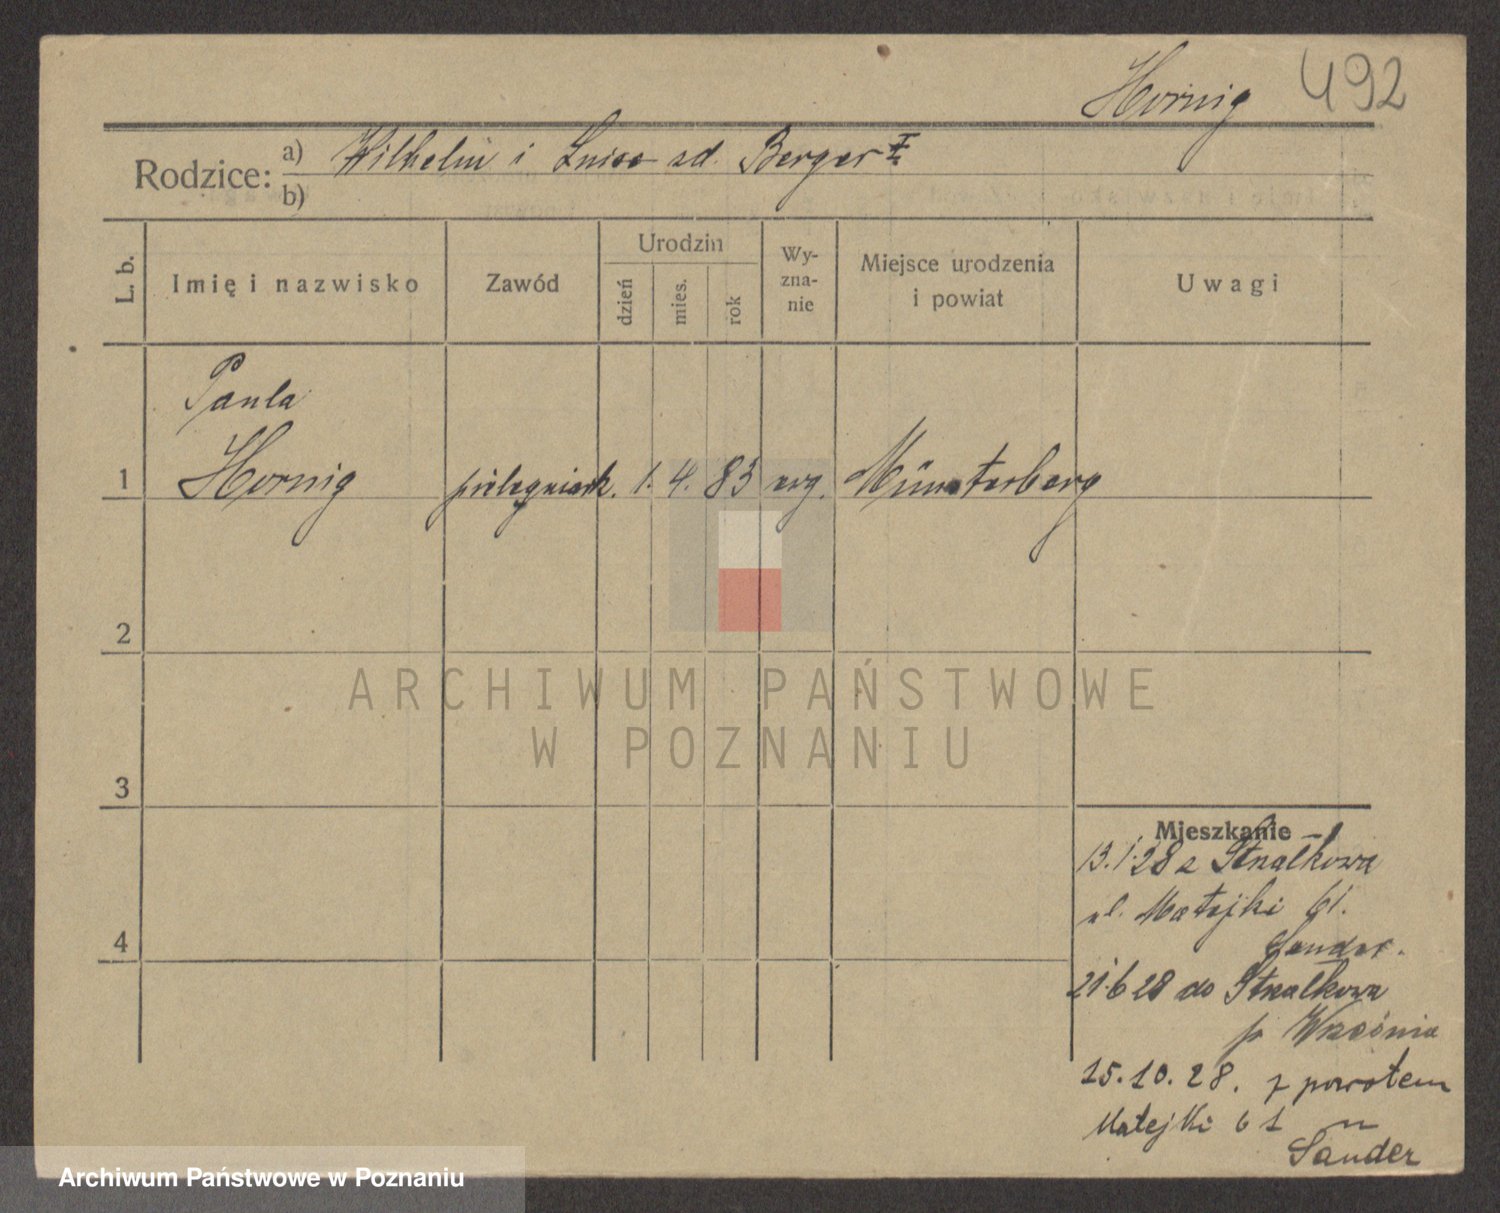 Hornig 492
Rodzice: a) Wilhelm i Luise zd. Berger
b)
L. b. Imię i nazwisko Zawód Urodzin dzień mies. rok Wy-zna-nie Miejsce urodzenia i powiat Uwagi
Paula
1 Hornig pielęgniark. 1. 4. 83 ewg. Münsterberg
2
3
4
Mieszkanie
13.1.28 z Strzałkowa
ul. Matejki 61.
Sander.
21.6 28 do Strzałkowa
p. Września
15.10.28. z powrotem
Matejki 61
Sander
ARCHIWUM PAŃSTWOWE
W POZNANIU
Archiwum Państwowe w Poznaniu